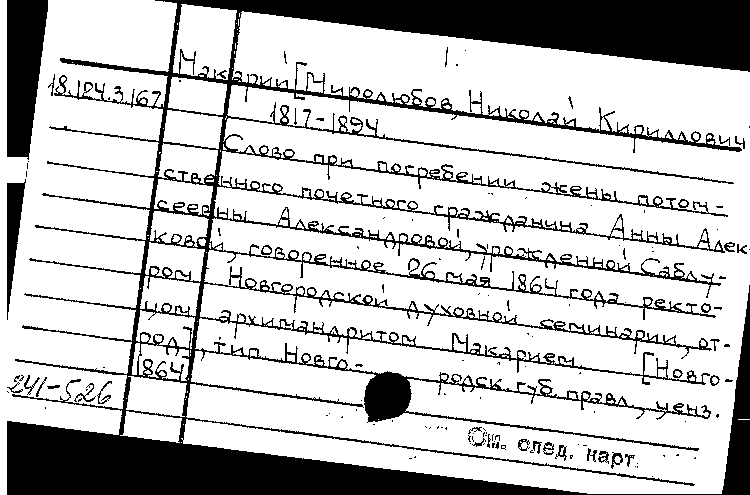 1.
Макарий [Миролюбов, Николай Кириллович]
18.124.3.167
1817-1894.
Слово при погребении жены потом-
ственного почетного гражданина Анны Алек-
сеевны Александровой, урожденной Саблу-
ковой, говоренное 26 мая 1864 года ректо-
ром Новгородской духовной семинарии, от-
цом архимандритом Макарием. [Новго-
род], тип. Новго- родск. губ. правл., ценз.
1864.
241-526
См. след. карт.